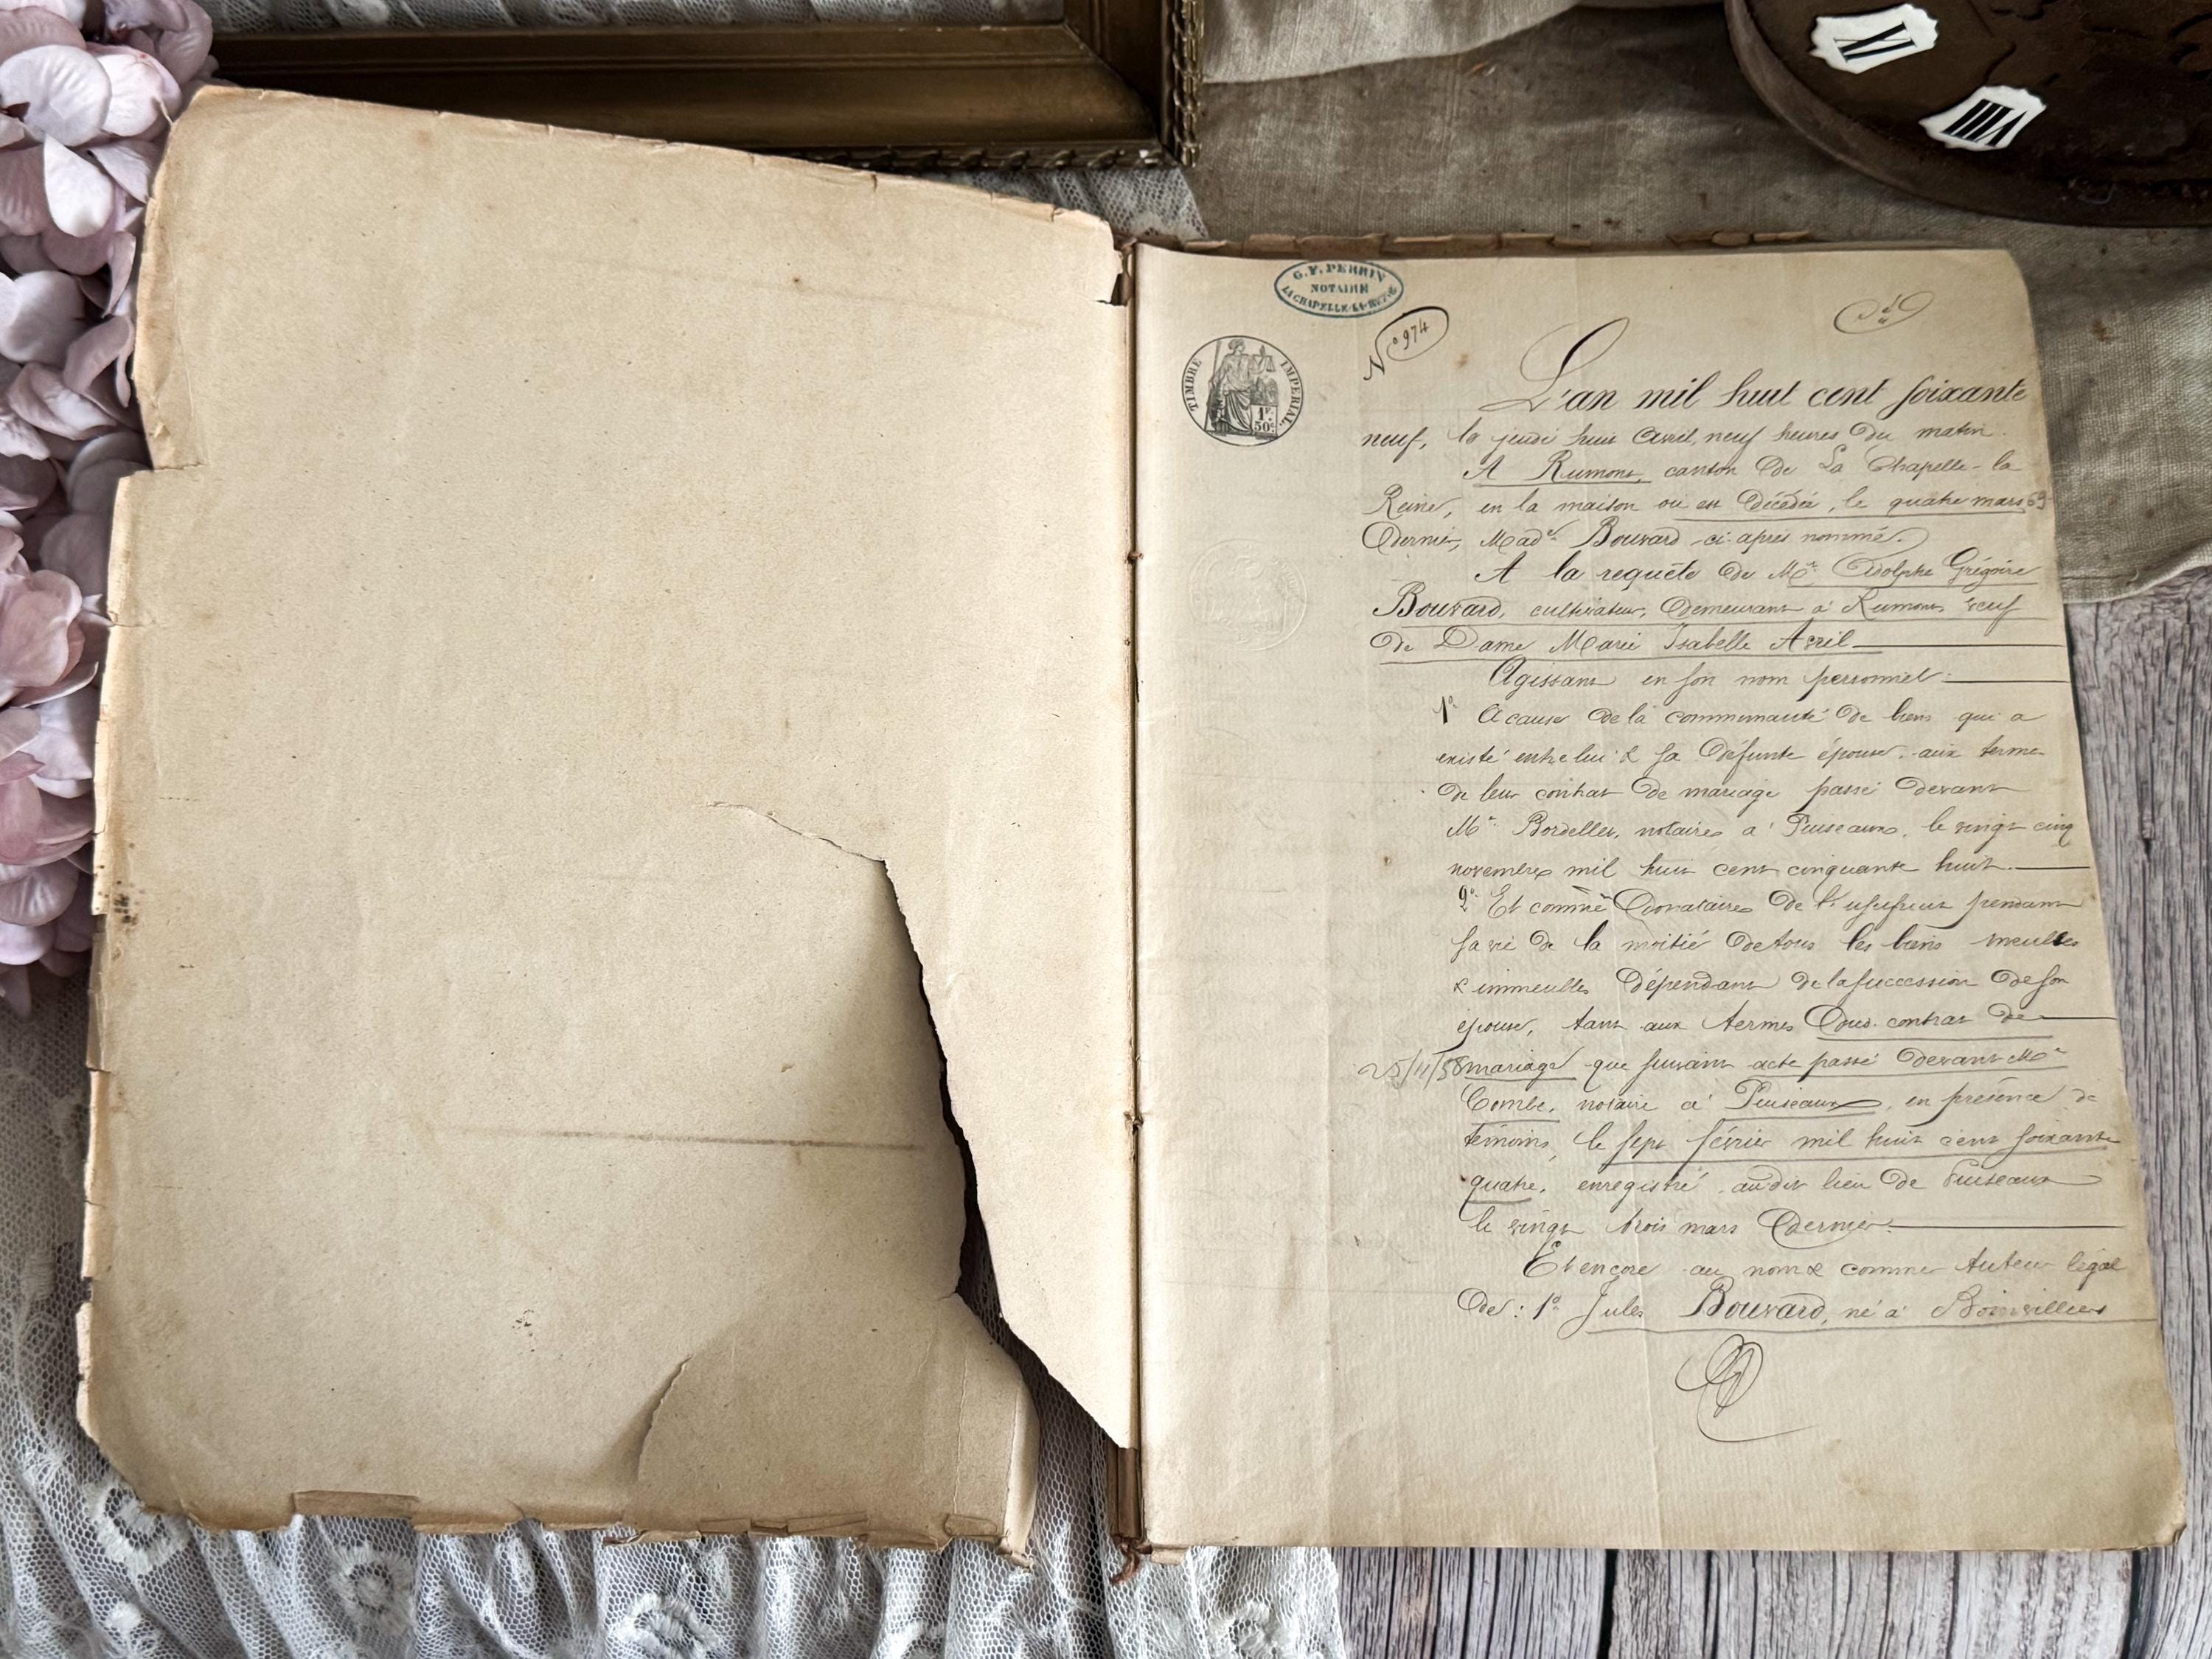 VI
VIII
G. F. PERRIN
NOTAIRE
LA CHAPELLE-LA-REINE
N° 974
TIMBRE IMPERIAL
1F.
50C.
L'an mil huit cent soixante
neuf, le jeudi huit Avril, neuf heures du matin.
A Rumont, canton de La Chapelle-la
Reine, en la maison où est décédée, le quatre mars 69
dernier, Made Bouvard ci-après nommé.
A la requête de Mr. Adolphe Grégoire
Bouvard, cultivateur, demeurant à Rumont veuf
de Dame Marie Isabelle Avril
Agissant en son nom personnel:
1° A cause de la communauté de biens qui a
existé entre lui & sa défunte épouse, aux terme
de leur contrat de mariage passé devant
Me Bordellet, notaire à Puiseaux, le vingt cinq
novembre mil huit cent cinquante huit.
2° Et comme donataire de l'usufruit pendant
sa vie de la moitié de tous les biens meubles
& immeubles dépendant de la succession de son
épouse, tant aux termes dud. contrat de
25/11/58 mariage que suivant acte passé devant Me
Combe, notaire à Puiseaux, en présence de
témoins, le sept février mil huit cent soixante
quatre, enregistré audit lieu de Puiseaux
le vingt trois mars dernier.
Et encore au nom & comme tuteur légal
de: 1° Jules Bouvard, né à Boinvilliers